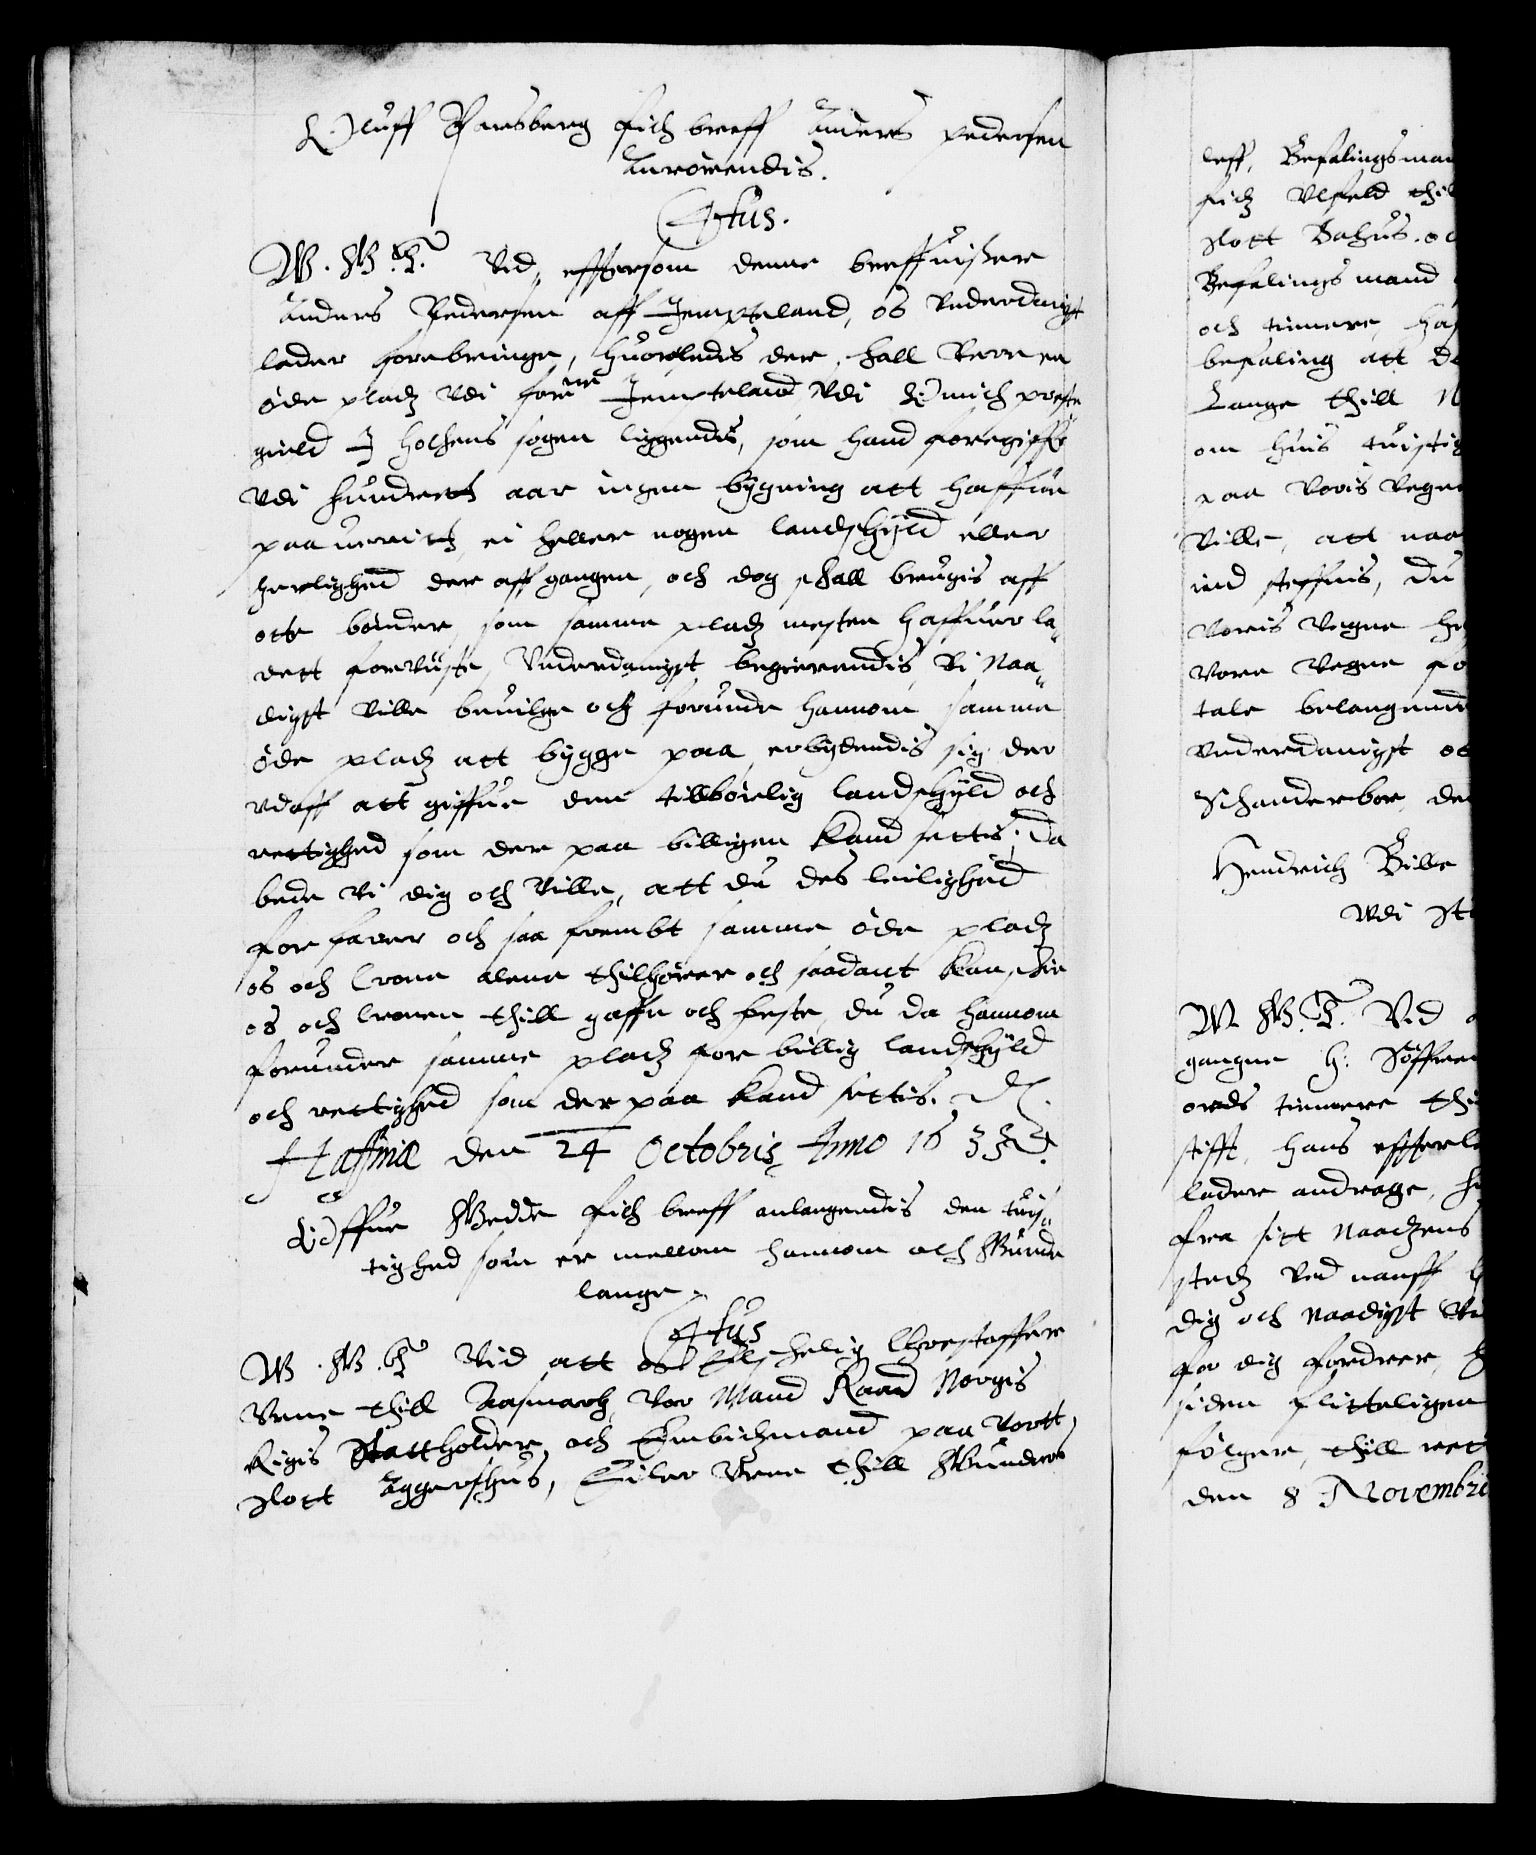 Oluff Parsberg fich breff Anders Pedersen
Anrørendis.
C4tus.
W. W. G. Vid, efftersom denne breffuisere
Anders Pedersen aff Jempteland, os Vnderdanigst
lader forebringe, huorledis der, skall Vere en
øde pladz Vdi forne Jempteland Vdi Ovnich preste
gield I Hochens sogen liggendis, som hand foregiffr
Vdi hundrett aar ingen bygning att haffue
paa veritt, ei heller nogen landschyld eller
herlighed der aff gangen, och dog schall brugis aff
otte bønder, som samme pladz mesten haffuer la,,
dett forøuste, Vnderdanigst begierendis, Vi Naa,,
digst Ville beuilge och forunde hannom samme
øde pladz att bygge paa, erbydendis sig der
vdaff att giffue den tillbørlig landschyld och
rettighed som der paa billigen kand settis; Da
bede Vi dig och Ville, att du des leilighed
forfarer och saa frembt samme øde pladz
os och Crone alene thilhører och saadant kan, skie
os och Cronen thill gaffn och beste, du da hannom
forunder samme pladz for billig landschyld
och rettighed som der paa kand settis. D.
Haffniæ den 24 Octobris Anno 1633.
Offue Gedde fich breff anlangendis den tuis,,
tighed som er mellom hannom och Gunde
Lange.
C4tus
W. W. G. Vid att os Elschelig Christoffer
Vrne thill Aasmarch, Vor Mand Raad Norgis
Rigis Stattholder, och Embitzmand paa Vortt
slott Aggershus, Eiler Vrne thill
leff, Befalingsman
fich Vlfeld thil
slott Bahus. oc
Befalings mand
och tienere, haf
befaling att d
Lange thill
om huis tuistig
paa Voris Vegne
Ville, att naa
ind steffnis, du
Voris Vegne h
Vore Vegne fo
tale belangend
Vnderdanigst os
Schanderbor, de
Hendrich Bille
Vdi St
W. W. G. Vid
gangne H: Søffren
ords tienere thi
stifft, hans effterl
lader andrage, h
fra sitt Naadzens
stedz Ved naffn
dig och Naadigst V
for dig fordrer,
siden flitteligen
følger, thill rett
den 8 Novembri